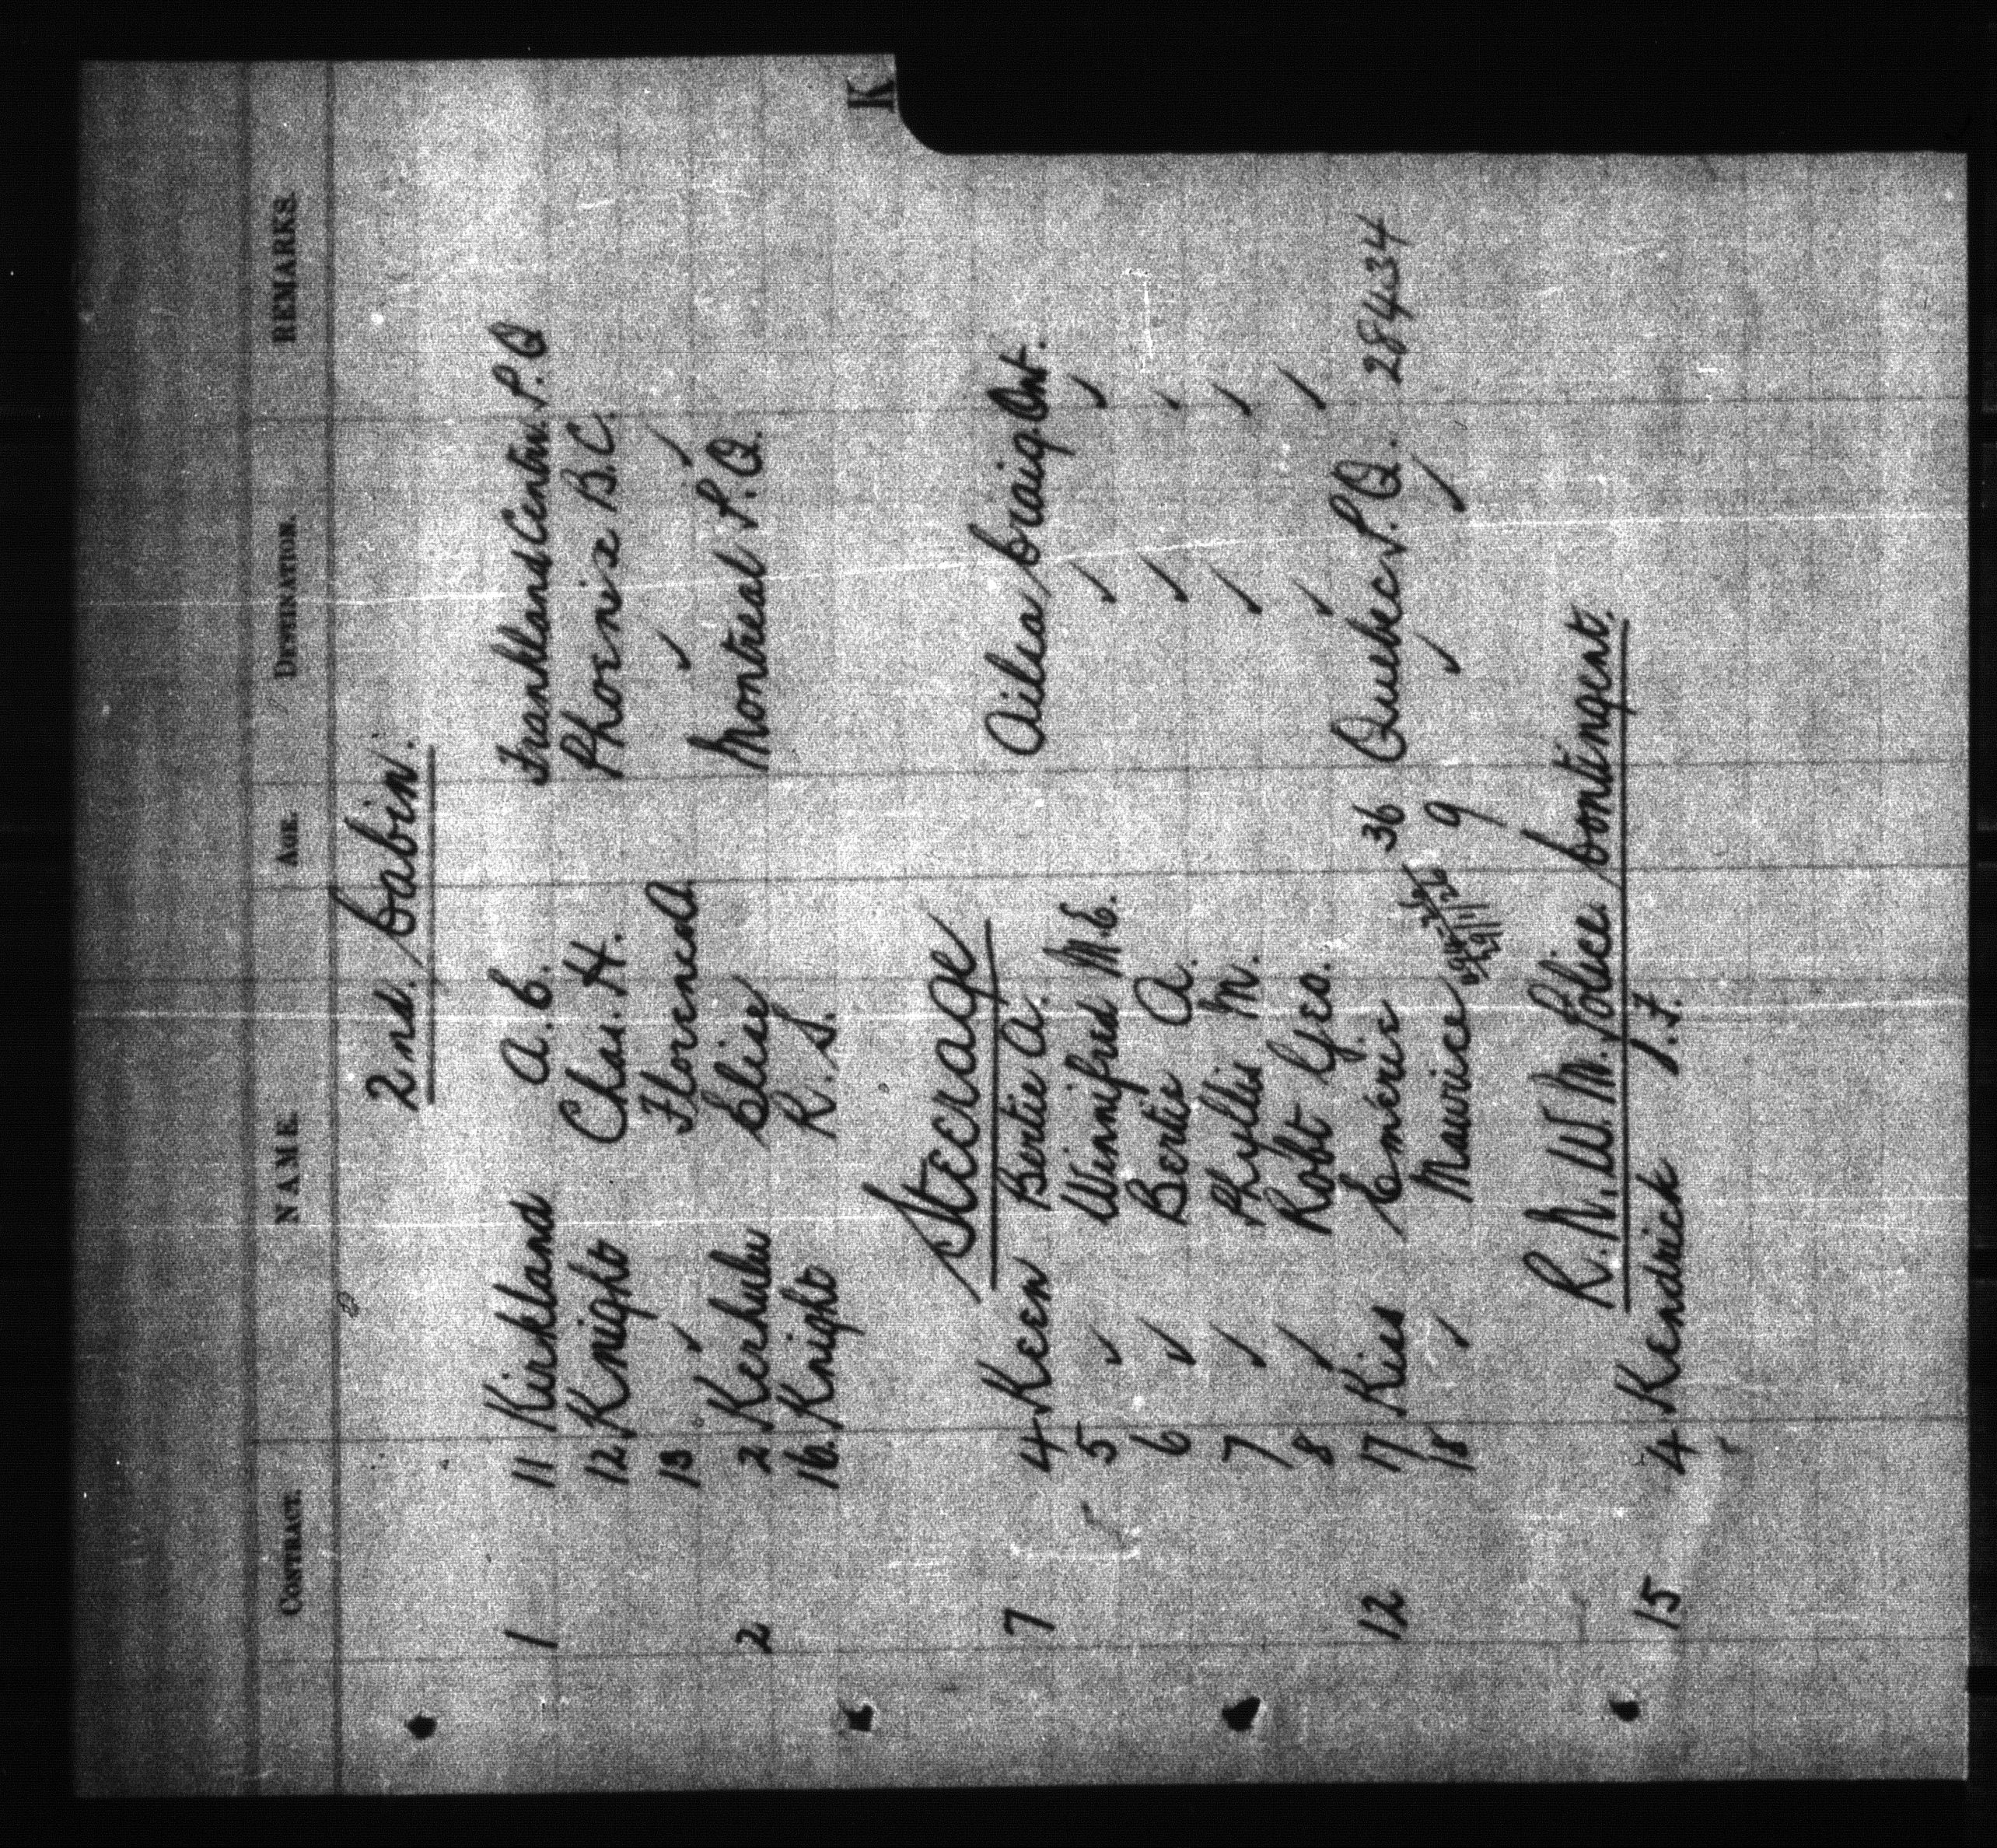 K
CONTRACT. NAME. AGE. DESTINATION. REMARKS.
2nd. Cabin.
1 11 Kirkland A. C. Frankland Centre. P.Q
12 Knight Chas. H. Phoenix B.C.
13 ✓ Florence A. ✓ ✓
2 2 Kerhulu Elise Montreal P.Q.
16. Knight R. S.
Steerage
7 4 Keen Bertie A. Ailsa Craig Ont.
5 ✓ Winnifred M.E. ✓ ✓
6 ✓ Bertie A. ✓ ✓
7 ✓ Phyllis M. ✓ ✓
8 ✓ Robt Geo. ✓ ✓
12 17 Kiss Emérie 36 Quebec P.Q. 28434
18 ✓ Maurice 9 ✓ ✓
R.N.W.M. Police Contingent.
15 4 Kendrick J.F.